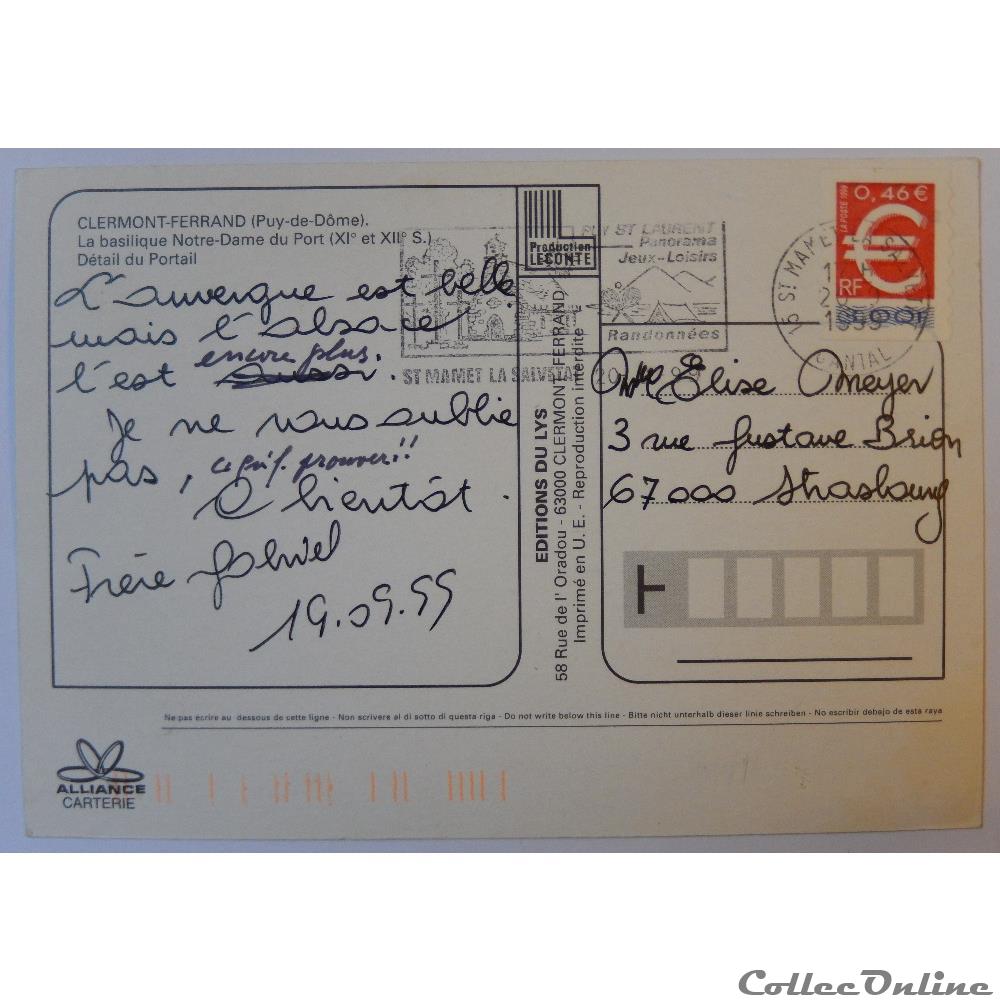 CLERMONT-FERRAND (Puy-de-Dôme).
La basilique Notre-Dame du Port (XI° et XII° S.)
Détail du Portail
L'auvergne est belle
mais l'alsace
l'est encore plus.
Je ne vous oublie
pas, ce qu'il f. prouver!!
A bientôt.
Frère
19.09.99
Production
LECONTE
PUY ST LAURENT
Panorama
Jeux-Loisirs
Randonnées
ST MAMET LA SALVETAT
EDITIONS DU LYS
58 Rue de l'Oradou - 63000 CLERMONT-FERRAND
Imprimé en U. E. - Reproduction interdite
0,46 €
LA POSTE 1999
RF
3,00F
15 ST MAMET
1999
CANTAL
Elise Meyer
3 rue Gustave Brion
67000 Strasbourg
T
Ne pas écrire au dessous de cette ligne - Non scrivere al di sotto di questa riga - Do not write below this line - Bitte nicht unterhalb dieser linie schreiben - No escribir debajo de esta raya
ALLIANCE
CARTERIE
CollecOnline